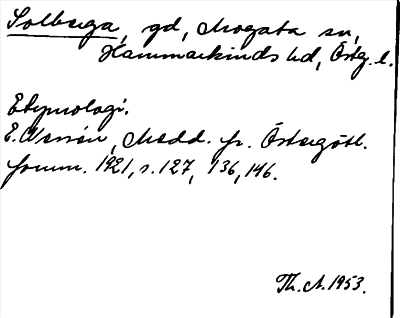 Solberga, gd, Mogata sn,
Hammarkinds hd, Östg. l.
Etymologi.
E. Norén, Medd. fr. Östergötl.
fornm. 1921, s. 127, 136, 146.
Th. A. 1953.